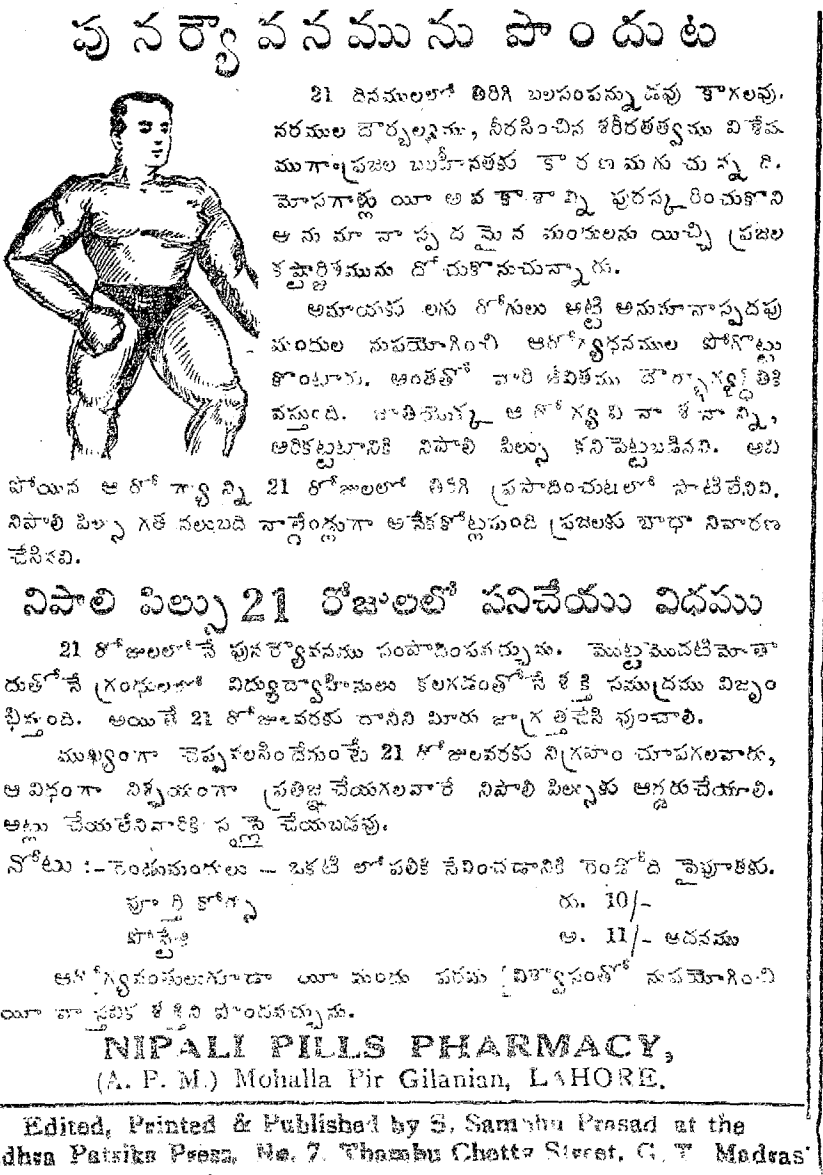 పునర్యౌవనమును పొందుట
21 దినములలో తిరిగి బలసంపన్నుడవు కాగలవు.
నరముల దౌర్బల్యము, నీరసించిన శరీరతత్వము విశేష
ముగా ప్రజల బలహీనతకు కారణమగుచున్నది.
మోసగాళ్లు యీ అవకాశాన్ని పురస్కరించుకొని
అనుమానాస్పదమైన మందులను యిచ్చి ప్రజల
కష్టార్జితమును దోచుకొనుచున్నారు.
అమాయకులగు రోగులు అట్టి అనుమానాస్పదపు
మందుల నుపయోగించి ఆరోగ్యధనముల పోగొట్టు
కొంటారు. అంతతో వారి జీవితము దౌర్భాగ్యస్థితికి
వస్తుంది. జాతియొక్క ఆరోగ్యవినాశనాన్ని,
అరికట్టటానికి నిపాలి పిల్సు కనిపెట్టబడినవి. అవి
పోయిన ఆరోగ్యాన్ని 21 రోజులలో తిరిగి ప్రసాదించుటలో సాటిలేనివి.
నిపాలి పిల్సు గత నలుబది వత్సరాలుగా అనేకకోట్లమంది ప్రజలకు బాధా నివారణ
చేసినవి.
నిపాలి పిల్సు 21 రోజులలో పనిచేయు విధము
21 రోజులలోనే పునర్యౌవనము సంపాదింపవచ్చును. మొట్టమొదటిమోతా
దుతోనే గ్రంధులలో విద్యుద్వాహినులు కలగడంతోనే శక్తి సముద్రము విజృం
భిస్తుంది. అయితే 21 రోజులవరకు దానిని మీరు జాగ్రత్తచేసి వుంచాలి.
ముఖ్యంగా చెప్పవలసిందేమంటే 21 రోజులవరకు నిగ్రహం చూపగలవారు,
ఆ విధంగా నిశ్చయంగా ప్రతిజ్ఞ చేయగలవారే నిపాలి పిల్సుకు ఆర్డరుచేయాలి.
అట్లు చేయలేనివారికి సప్లై చేయబడవు.
నోటు :– రెండుమందులు – ఒకటి లోపలికి సేవించడానికి రెండోది పైపూతకు.
పూర్తి కోర్సు రు. 10/-
పోస్టేజి అ. 11/- అదనము
ఆరోగ్యవంతులుగూడా యీ మందు పరమ విశ్వాసంతో నుపయోగించి
యీ వాస్తవిక శక్తిని పొందవచ్చును.
NIPALI PILLS PHARMACY,
(A. P. M.) Mohalla Pir Gilanian, LAHORE.
Edited, Printed & Published by S. Sambhu Prasad at the
dhra Patrika Press, No. 7, Thambu Chetty Street, G. T. Madras